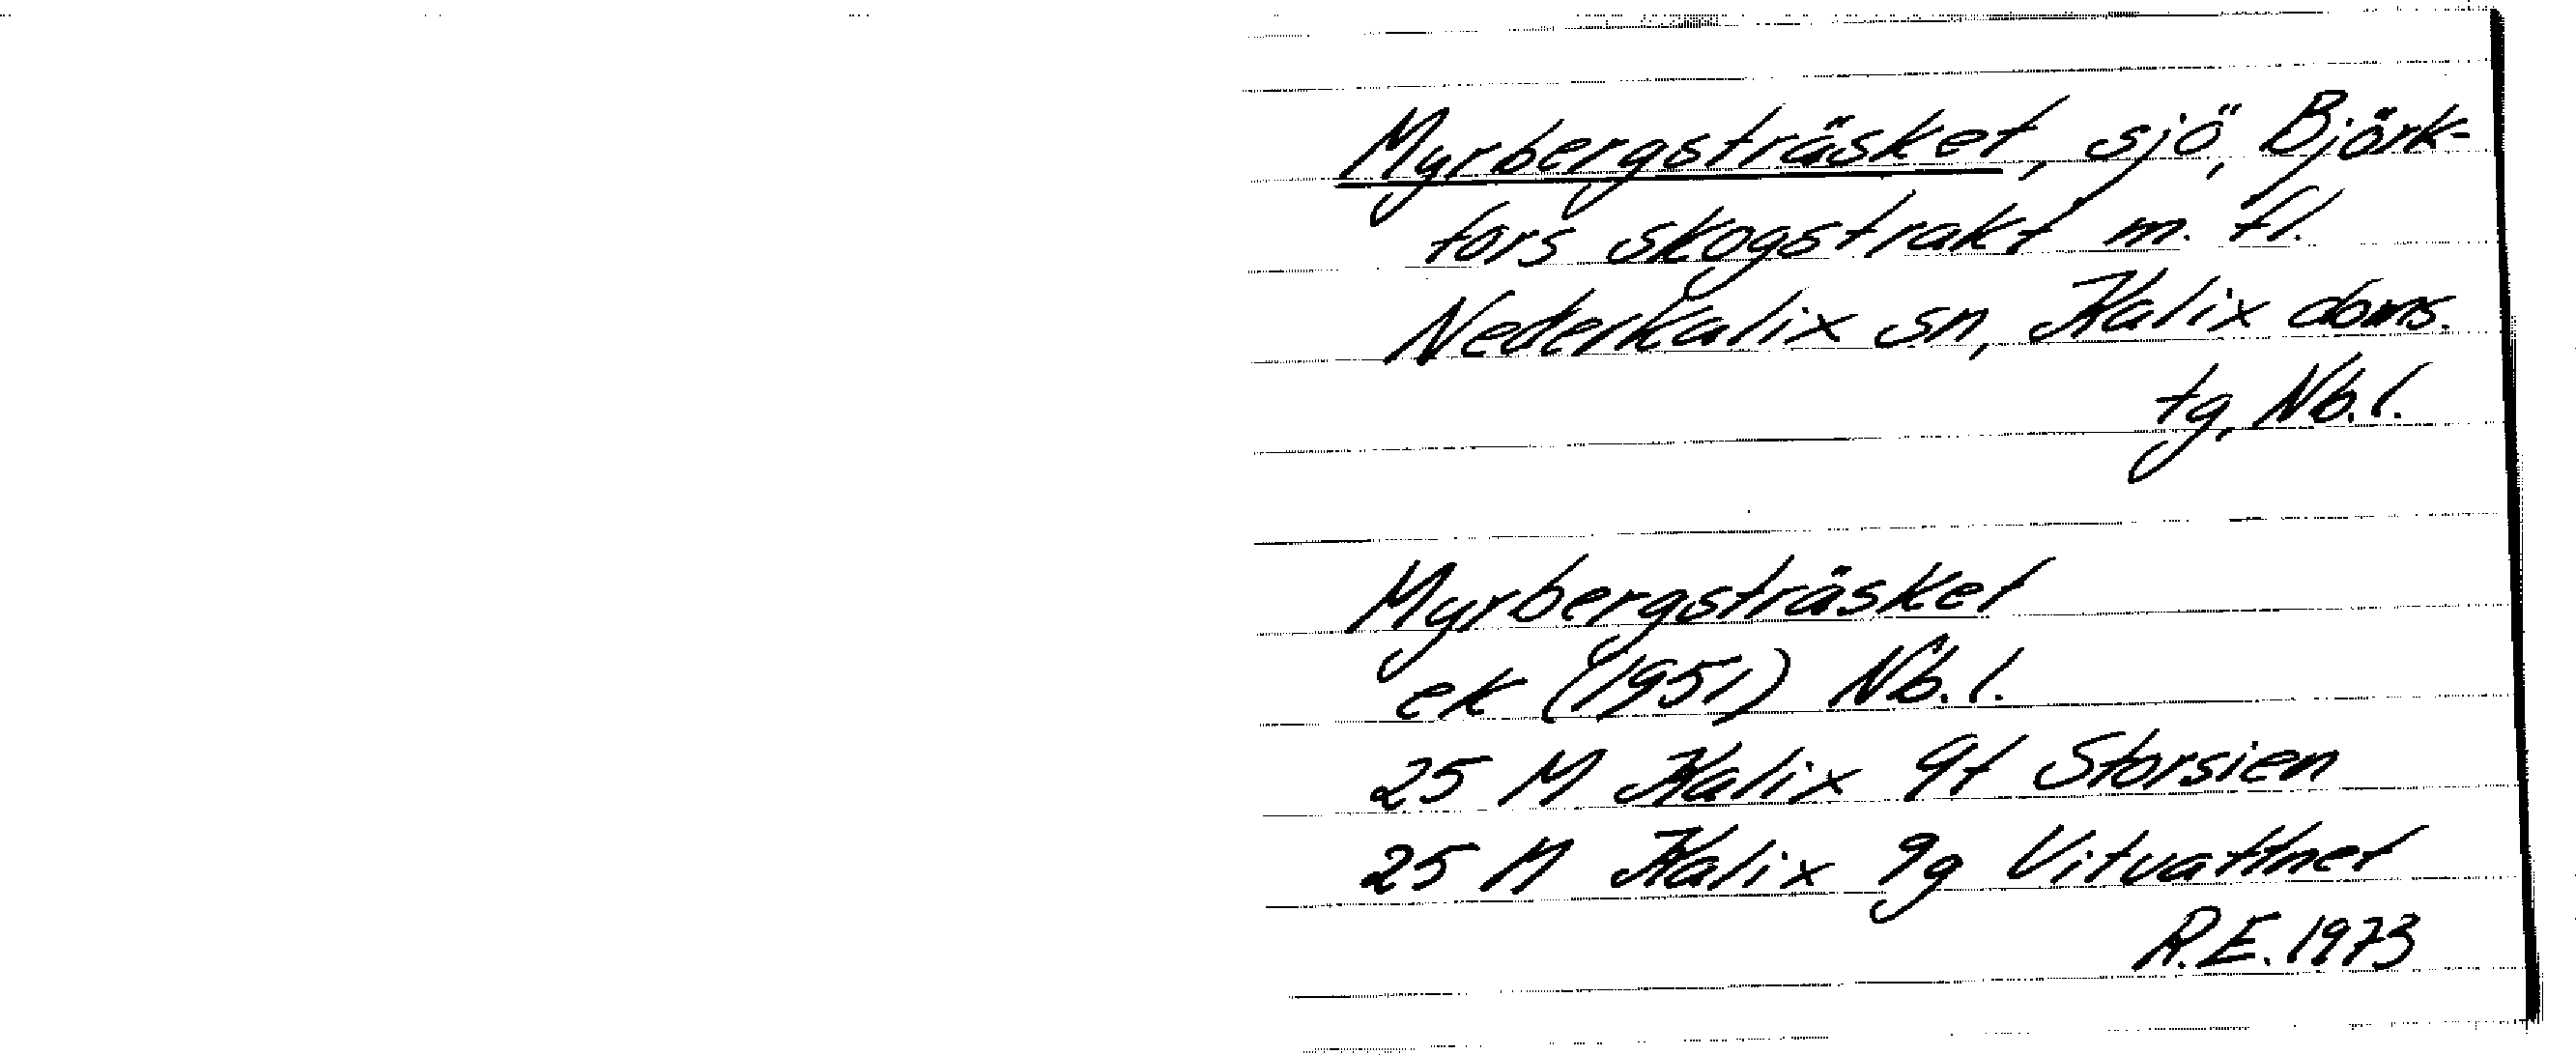 Myrbergsträsket, sjö, Björk-
fors skogstrakt m. fl.
Nederkalix sn, Kalix doms.
tg, Nb.l.
Myrbergsträsket
ek (1951) Nb.l.
25 M Kalix 9f Storsien
25 M Kalix 9g Vitvattnet
R.E. 1973